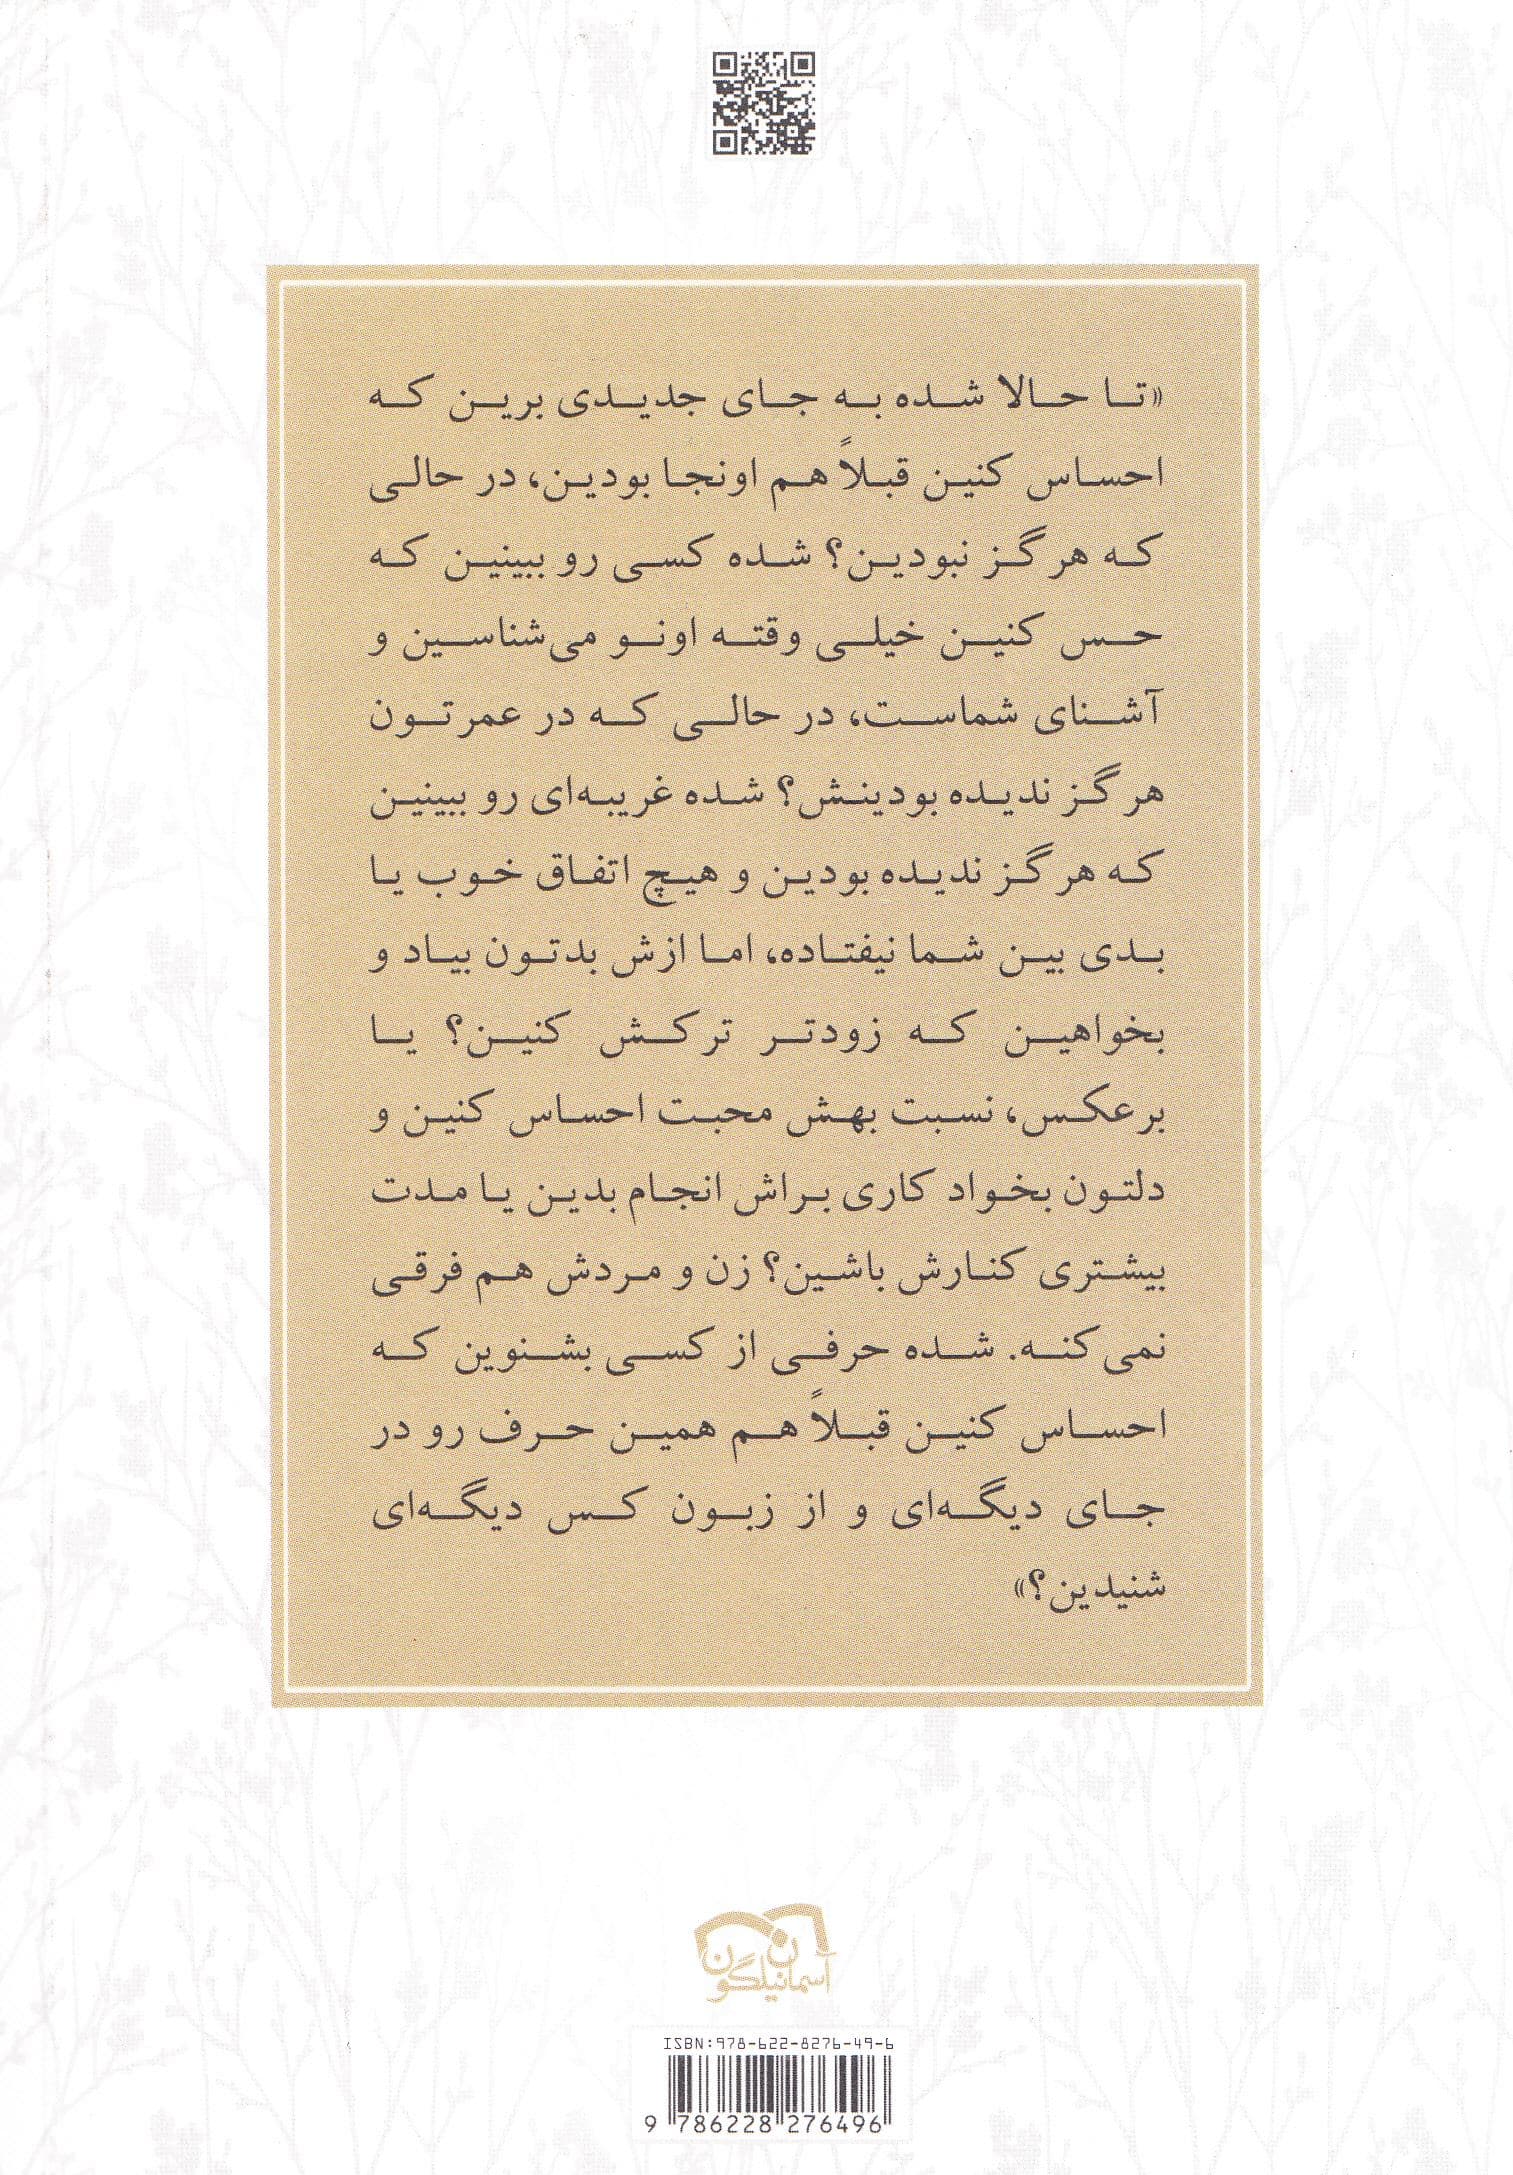 «تا حالا شده به جای جدیدی برین که
احساس کنین قبلاً هم اونجا بودین، در حالی
که هرگز نبودین؟ شده کسی رو ببینین که
حس کنین خیلی وقته اونو می‌شناسین و
آشنای شماست، در حالی که در عمرتون
هرگز ندیده بودینش؟ شده غریبه‌ای رو ببینین
که هرگز ندیده بودین و هیچ اتفاق خوب یا
بدی بین شما نیفتاده، اما ازش بدتون بیاد و
بخواهین که زودتر ترکش کنین؟ یا
برعکس، نسبت بهش محبت احساس کنین و
دلتون بخواد کاری براش انجام بدین یا مدت
بیشتری کنارش باشین؟ زن و مردش هم فرقی
نمی‌کنه. شده حرفی از کسی بشنوین که
احساس کنین قبلاً هم همین حرف رو در
جای دیگه‌ای و از زبون کس دیگه‌ای
شنیدین؟»
آسمان نیلگون
ISBN:978-622-8276-49-6
9 786228 276496